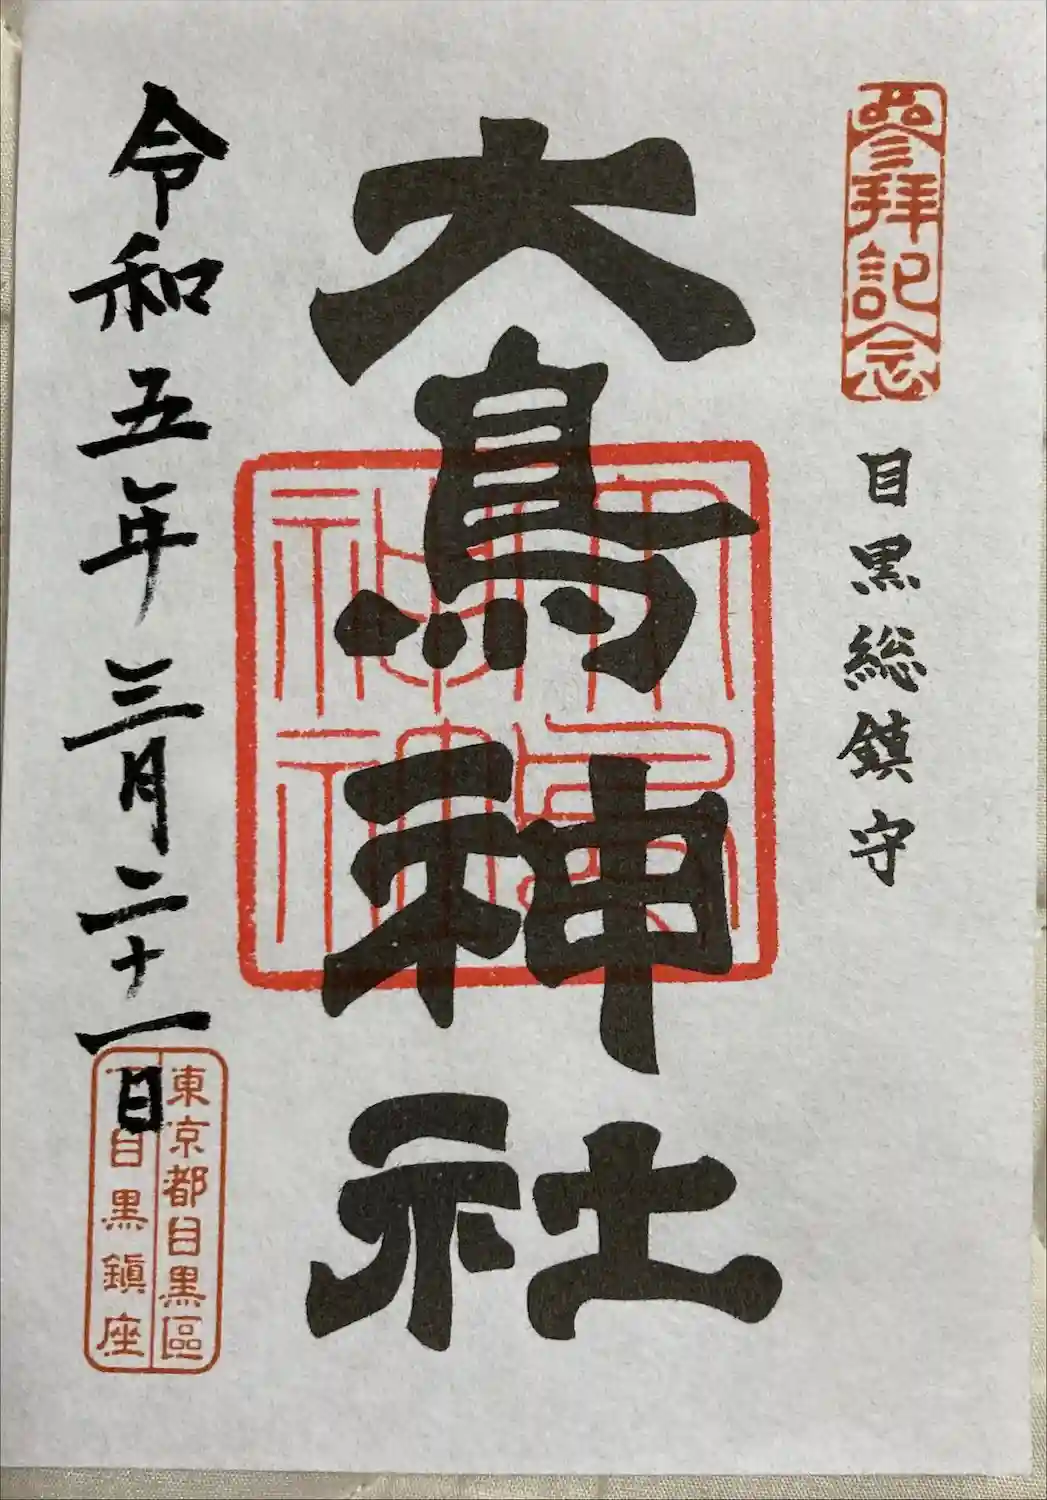 參拜記念
目黒総鎮守
大鳥神社
大鳥神社
令和五年三月二十一日
東京都目黒區
下目黒鎭座